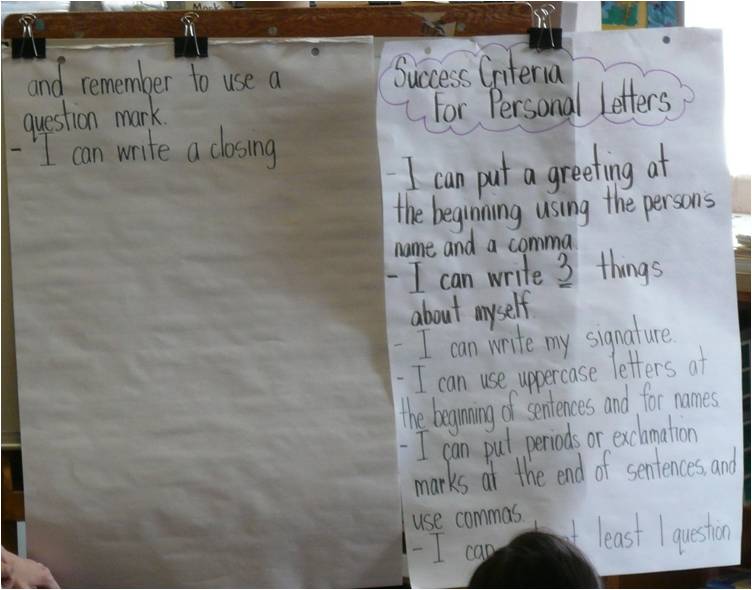 Success Criteria
For Personal Letters
- I can put a greeting at
the beginning using the person's
name and a comma
- I can write 3 things
about myself.
- I can write my signature.
- I can use uppercase letters at
the beginning of sentences and for names.
- I can put periods or exclamation
marks at the end of sentences, and
use commas.
- I can least 1 question
and remember to use a
question mark.
- I can write a closing